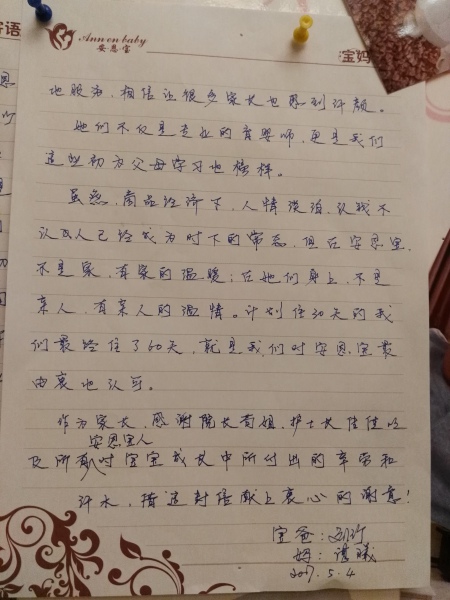 Ann en baby
安恩宝
寄语
宝妈
地服务，相信让很多家长也感到汗颜。
她们不仅是专业的育婴师，更是我们
这些初为父母学习也榜样。
虽然，商品经济下，人情淡泊，认钱不
认人已经成为时下的常态，但在安恩宝，
不是家，有家的温暖；在她们身上，不是
亲人，有亲人的温情。计划住30天的我
们最终住了60天，就是我们对安恩宝最
由衷地认可。
作为家长，感谢院长苟姐，护士长佳佳以
安恩宝人
及所有对宝宝成长中所付出的辛劳和
汗水，借这封信献上衷心的谢意！
宝爸：刘
妈：谭
2017.5.4